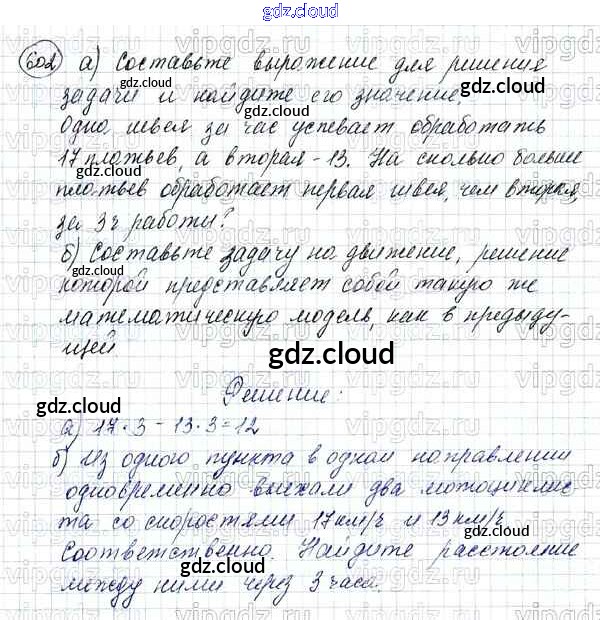 gdz.cloud
602 а) Составьте выражение для решения
задачи и найдите его значение.
Одна швея за час успевает обработать
17 платьев, а вторая - 13. На сколько больше
платьев обработает первая швея, чем вторая,
за 3ч работы?
б) Составьте задачу на движение, решение
которой представляет собой такую же
математическую модель, как в предыду-
щей
gdz.cloud
Решение:
а) 17·3 - 13·3=12
б) Из одного пункта в одном направлении
одновременно выехали два мотоциклис-
та со скоростями 17 км/ч и 13 км/ч
соответственно. Найдите расстояние
между ними через 3 часа.